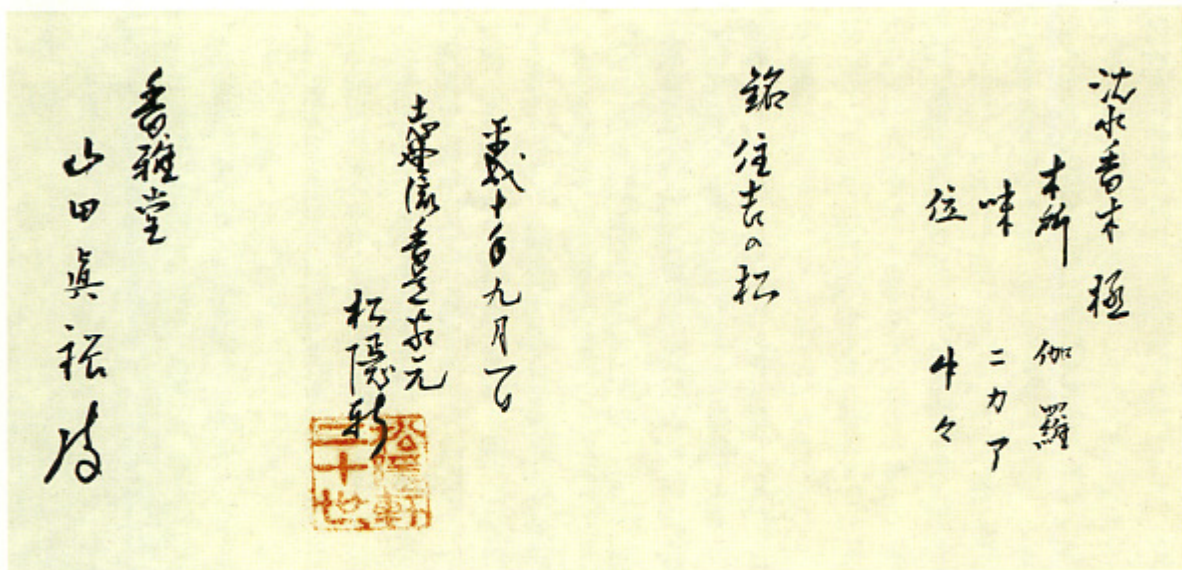 沈水香木 極
木所 伽羅
味 ニカア
位 中々
銘 住吉の松
平成十年九月一日
志野流香道家元
松隠軒
松隠軒
二十世
香雅堂
山田眞裕